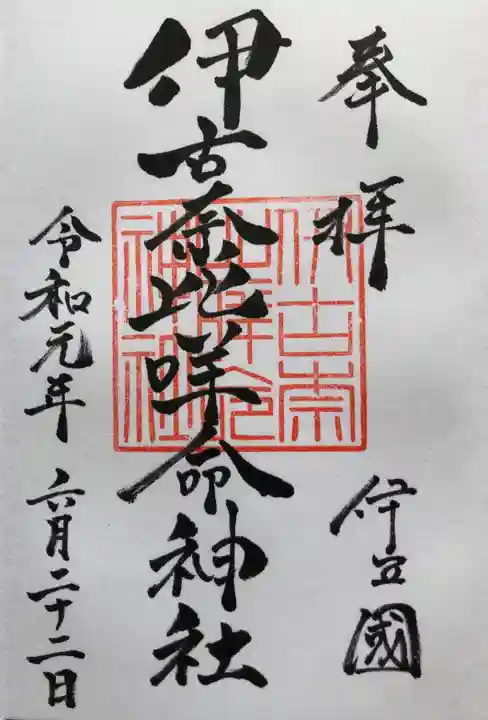 奉拝
伊豆國
伊古奈比咩命神社
伊古奈比咩命神社
令和元年 六月二十二日